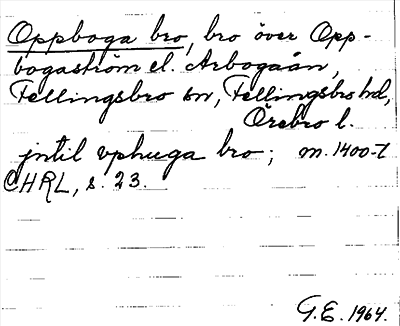 Oppboga bro, bro över Opp-
bogaström el. Arbogaån,
Fellingsbro sn, Fellingsbro hd,
Örebro l.
jntil vphuga bro; m. 1400-t
CHRL, s. 23.
G.E. 1964.